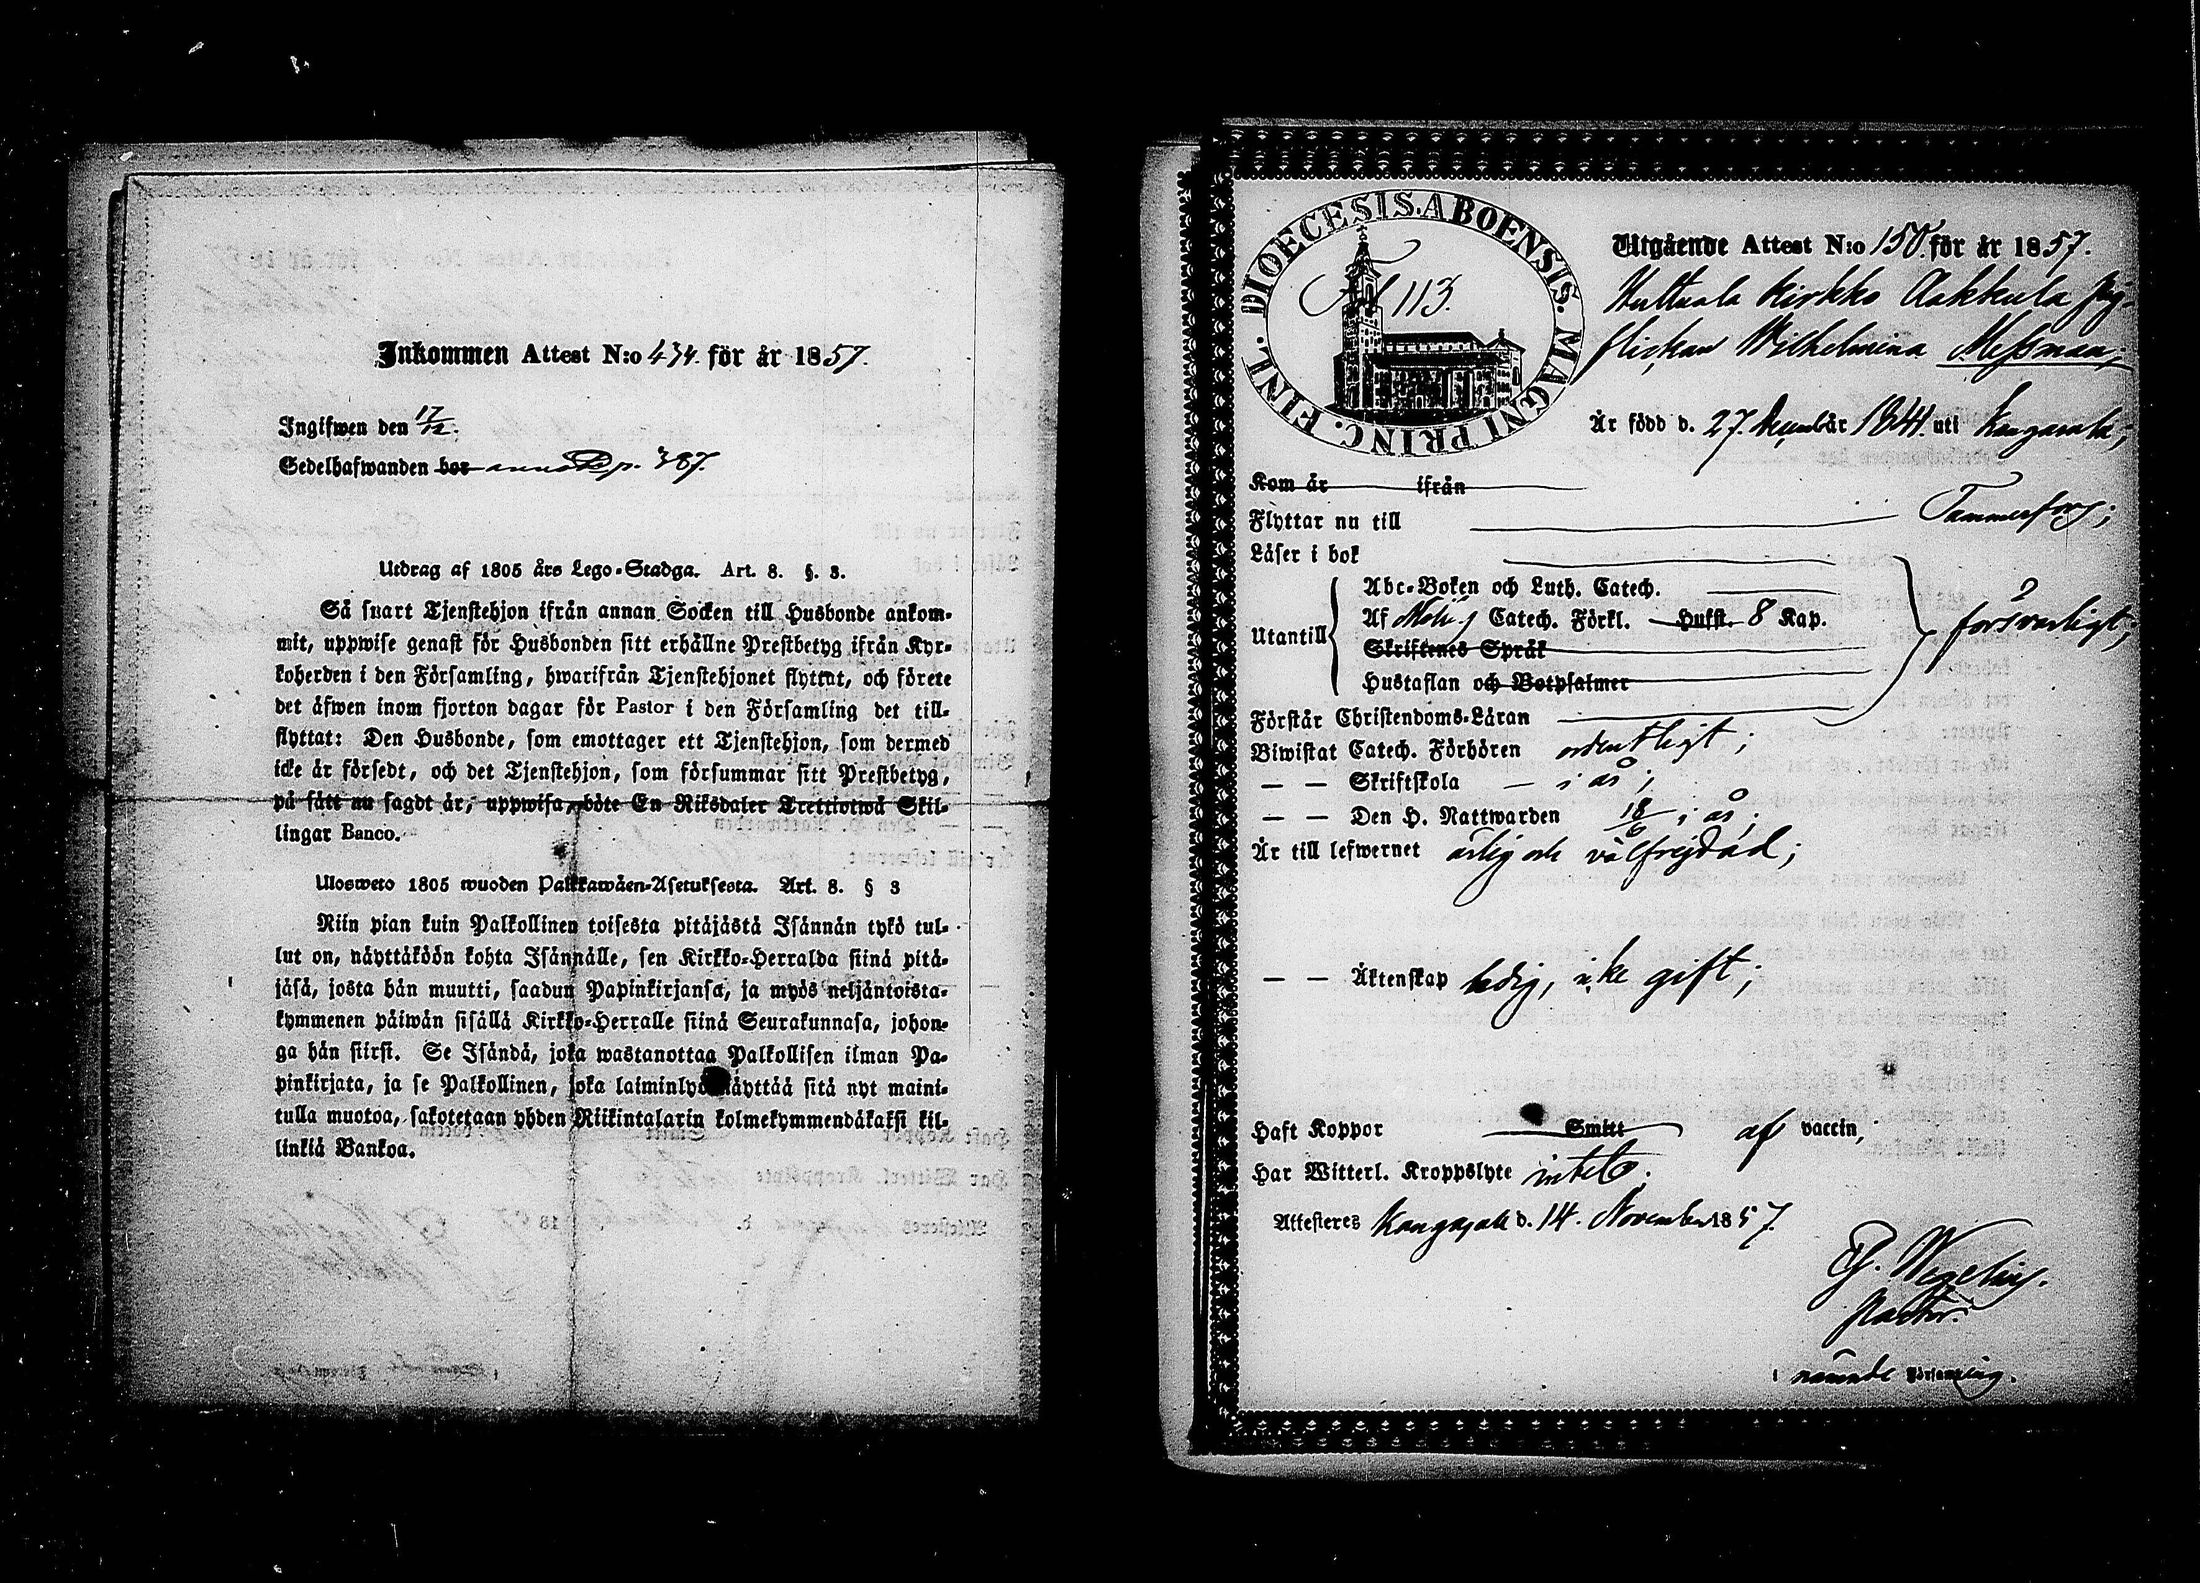 Inkommen Attest N:o 434. för år 1857.
Ingifwen den 17/12.
Sedelhafwanden bor annot. p. 387.
Utdrag af 1805 års Lego-Stadga. Art. 8. §. 3.
Så snart Tjenstehjon ifrån annan Socken till Husbonde ankom-
mit, uppwise genast för Husbonden sitt erhållne Prestbetyg ifrån Kyr-
koherden i den Församling, hwarifrån Tjenstehjonet flyttat, och förete
det äfwen inom fjorton dagar för Pastor i den Församling det till-
flyttat: Den Husbonde, som emottager ett Tjenstehjon, som dermed
icke är försedt, och det Tjenstehjon, som försummar sitt Prestbetyg,
på sätt nu sagdt är, uppwisa, böte En Riksdaler Trettiotwå Skil-
lingar Banco.
Ulosweto 1805 wuoden Palkkawäen-Asetuksesta. Art. 8. § 3
Niin pian kuin Palkollinen toisesta pitäjästä Isännän tykö tul-
lut on, näyttäköön kohta Isännälle, sen Kirkko-Herralda siinä pitä-
jäsä, josta hän muutti, saadun Papinkirjansa, ja myös neljäntoista-
kymmenen päiwän sisällä Kirkko-Herralle siinä Seurakunnasa, johon-
ga hän siirsi. Se Isändä, joka wastanottaa Palkollisen ilman Pa-
pinkirjata, ja se Palkollinen, joka laiminlyö näyttää sitä nyt maini-
tulla muotoa, sakotetaan yhden Riikintalarin kolmekymmendäkaksi kil-
linkiä Bankoa.
DIOECESIS. ABOENSIS. MAGNI PRINC. FINL.
Fol 113.
Utgående Attest N:o 150. för år 1857.
Huttaala kirkko Aakkula pig-
flickan Wilhelmina Messman;
Är född d. 27. Decembr år 1841. uti Kangasala;
Kom år ifrån
Flyttar nu till Tammerfors;
Läser i bok
Abc-Boken och Luth. Catech.
Utantill Af Catech. Förkl. Hufst. 8 Kap. försvarligt;
Skriftenes Språk
Hustaflan och Botpsalmer
Förstår Christendoms-Läran
Biwistat Catech. Förhören ordentligt;
— — Skriftskola — i år;
— — Den H. Nattwarden 18/6 i år;
Är till lefwernet ärlig och välfrejdad;
— — Äktenskap ledig, icke gift;
Haft Koppor Smitt af vaccin;
Har Witterl. Kroppslyte intet;
Attesteres Kangasala d. 14. November 1857.
G. Wegelius.
Pastor.
i nämnde Församling.